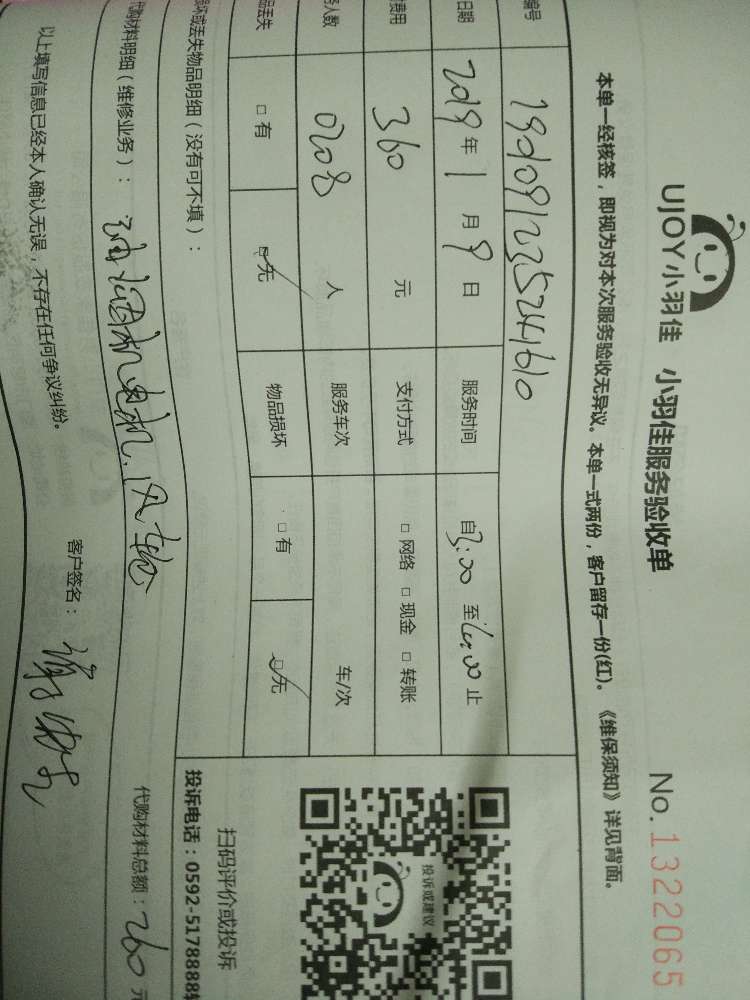 UJOY小羽佳 小羽佳服务验收单 No.1322065
本单一经核签，即视为对本次服务验收无异议。本单一式两份，客户留存一份(红)。《维保须知》详见背面。
编号
日期 2019年1月9日 服务时间 自3:00 至 止
费用 360 元 支付方式 □网络 □现金 □转账
人数 人 服务车次 车/次
品丢失 □有 □无 物品损坏 □有 □无
损坏或丢失物品明细（没有可不填）：
代购材料明细（维修业务）： 油烟机电机.风轮
代购材料总额：260元
以上填写信息已经本人确认无误，不存在任何争议纠纷。
客户签名：
投诉或建议
扫码评价或投诉
投诉电话：0592-5178888转